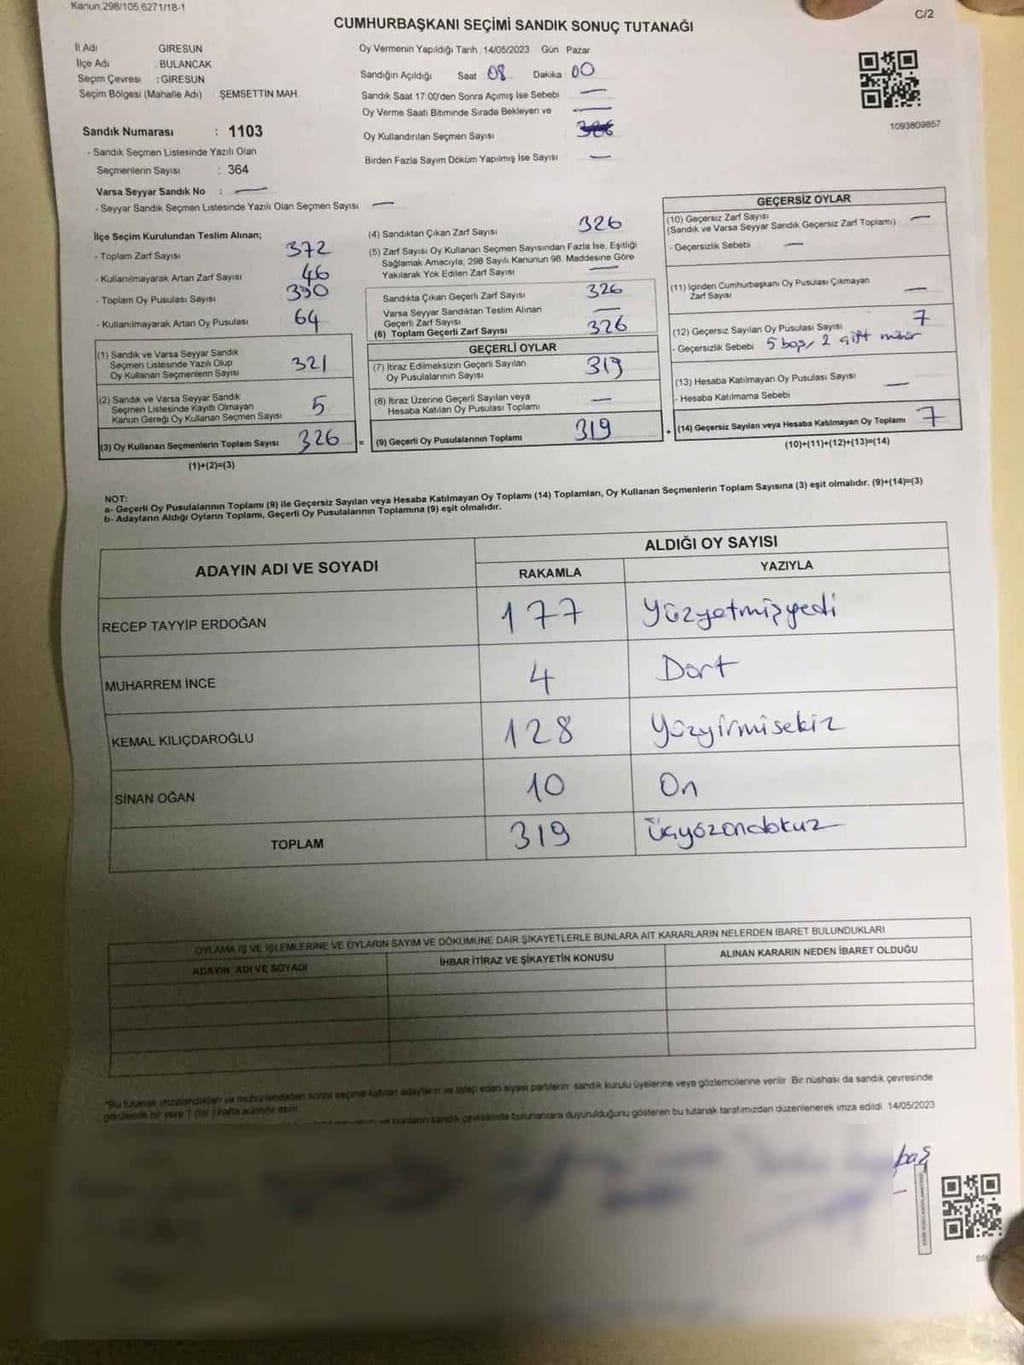 Kanun 298/105,6271/18-1
C/2
CUMHURBAŞKANI SEÇİMİ SANDIK SONUÇ TUTANAĞI
İl Adı GİRESUN
İlçe Adı BULANCAK
Seçim Çevresi : GİRESUN
Seçim Bölgesi (Mahalle Adı) ŞEMSETTİN MAH.
Sandık Numarası : 1103
- Sandık Seçmen Listesinde Yazılı Olan
Seçmenlerin Sayısı : 364
Varsa Seyyar Sandık No : —
- Seyyar Sandık Seçmen Listesinde Yazılı Olan Seçmen Sayısı —
Oy Vermenin Yapıldığı Tarih 14/05/2023 Gün Pazar
Sandığın Açıldığı Saat 08 Dakika 00
Sandık Saat 17.00'den Sonra Açımış İse Sebebi —
Oy Verme Saati Bitiminde Sırada Bekleyen ve —
Oy Kullandırılan Seçmen Sayısı
Birden Fazla Sayım Döküm Yapılmış İse Sayısı —
1093809857
İlçe Seçim Kurulundan Teslim Alınan;
- Toplam Zarf Sayısı 372
- Kullanılmayarak Artan Zarf Sayısı 46
- Toplam Oy Pusulası Sayısı 390
- Kullanılmayarak Artan Oy Pusulası 64
(1) Sandık ve Varsa Seyyar Sandık
Seçmen Listesinde Yazılı Olup
Oy Kullanan Seçmenlerin Sayısı 321
(2) Sandık ve Varsa Seyyar Sandık
Seçmen Listesinde Kayıtlı Olmayan
Kanun Gereği Oy Kullanan Seçmen Sayısı 5
(3) Oy Kullanan Seçmenlerin Toplam Sayısı 326 =
(1)+(2)=(3)
(4) Sandıktan Çıkan Zarf Sayısı 326
(5) Zarf Sayısı Oy Kullanan Seçmen Sayısından Fazla İse, Eşitliği
Sağlamak Amacıyla; 298 Sayılı Kanunun 98. Maddesine Göre
Yakılarak Yok Edilen Zarf Sayısı —
Sandıkta Çıkan Geçerli Zarf Sayısı 326
Varsa Seyyar Sandıktan Teslim Alınan
Geçerli Zarf Sayısı —
(6) Toplam Geçerli Zarf Sayısı 326
GEÇERLİ OYLAR
(7) İtiraz Edilmeksizin Geçerli Sayılan
Oy Pusulalarının Sayısı 319
(8) İtiraz Üzerine Geçerli Sayılan veya
Hesaba Katılan Oy Pusulası Toplamı —
(9) Geçerli Oy Pusulalarının Toplamı 319 +
GEÇERSİZ OYLAR
(10) Geçersiz Zarf Sayısı —
(Sandık ve Varsa Seyyar Sandık Geçersiz Zarf Toplamı)
- Geçersizlik Sebebi —
(11) İçinden Cumhurbaşkanı Oy Pusulası Çıkmayan
Zarf Sayısı —
(12) Geçersiz Sayılan Oy Pusulası Sayısı 7
- Geçersizlik Sebebi 5 boş, 2 çift mühür
(13) Hesaba Katılmayan Oy Pusulası Sayısı —
- Hesaba Katılmama Sebebi
(14) Geçersiz Sayılan veya Hesaba Katılmayan Oy Toplamı 7
(10)+(11)+(12)+(13)=(14)
NOT:
a- Geçerli Oy Pusulalarının Toplamı (9) ile Geçersiz Sayılan veya Hesaba Katılmayan Oy Toplamı (14) Toplamları, Oy Kullanan Seçmenlerin Toplam Sayısına (3) eşit olmalıdır. (9)+(14)=(3)
b- Adayların Aldığı Oyların Toplamı, Geçerli Oy Pusulalarının Toplamına (9) eşit olmalıdır.
ADAYIN ADI VE SOYADI
ALDIĞI OY SAYISI
RAKAMLA YAZIYLA
RECEP TAYYİP ERDOĞAN 177 Yüzyetmişyedi
MUHARREM İNCE 4 Dört
KEMAL KILIÇDAROĞLU 128 Yüzyirmisekiz
SİNAN OĞAN 10 On
TOPLAM 319 Üçyüzondokuz
OYLAMA İŞ VE İŞLEMLERİNE VE OYLARIN SAYIM VE DÖKÜMÜNE DAİR ŞİKAYETLERLE BUNLARA AİT KARARLARIN NELERDEN İBARET BULUNDUKLARI
ADAYIN ADI VE SOYADI İHBAR İTİRAZ VE ŞİKAYETİN KONUSU ALINAN KARARIN NEDEN İBARET OLDUĞU
"Bu tutanak imzalandıktan ve mühürlendikten sonra seçime katılan adayların ve talep eden siyasi partilerin sandık kurulu üyelerine veya gözlemcilerine verilir. Bir nüshası da sandık çevresinde
duyurulduğunu gösteren bu tutanak tarafımızdan düzenlenerek imza edildi. 14/05/2023
baş